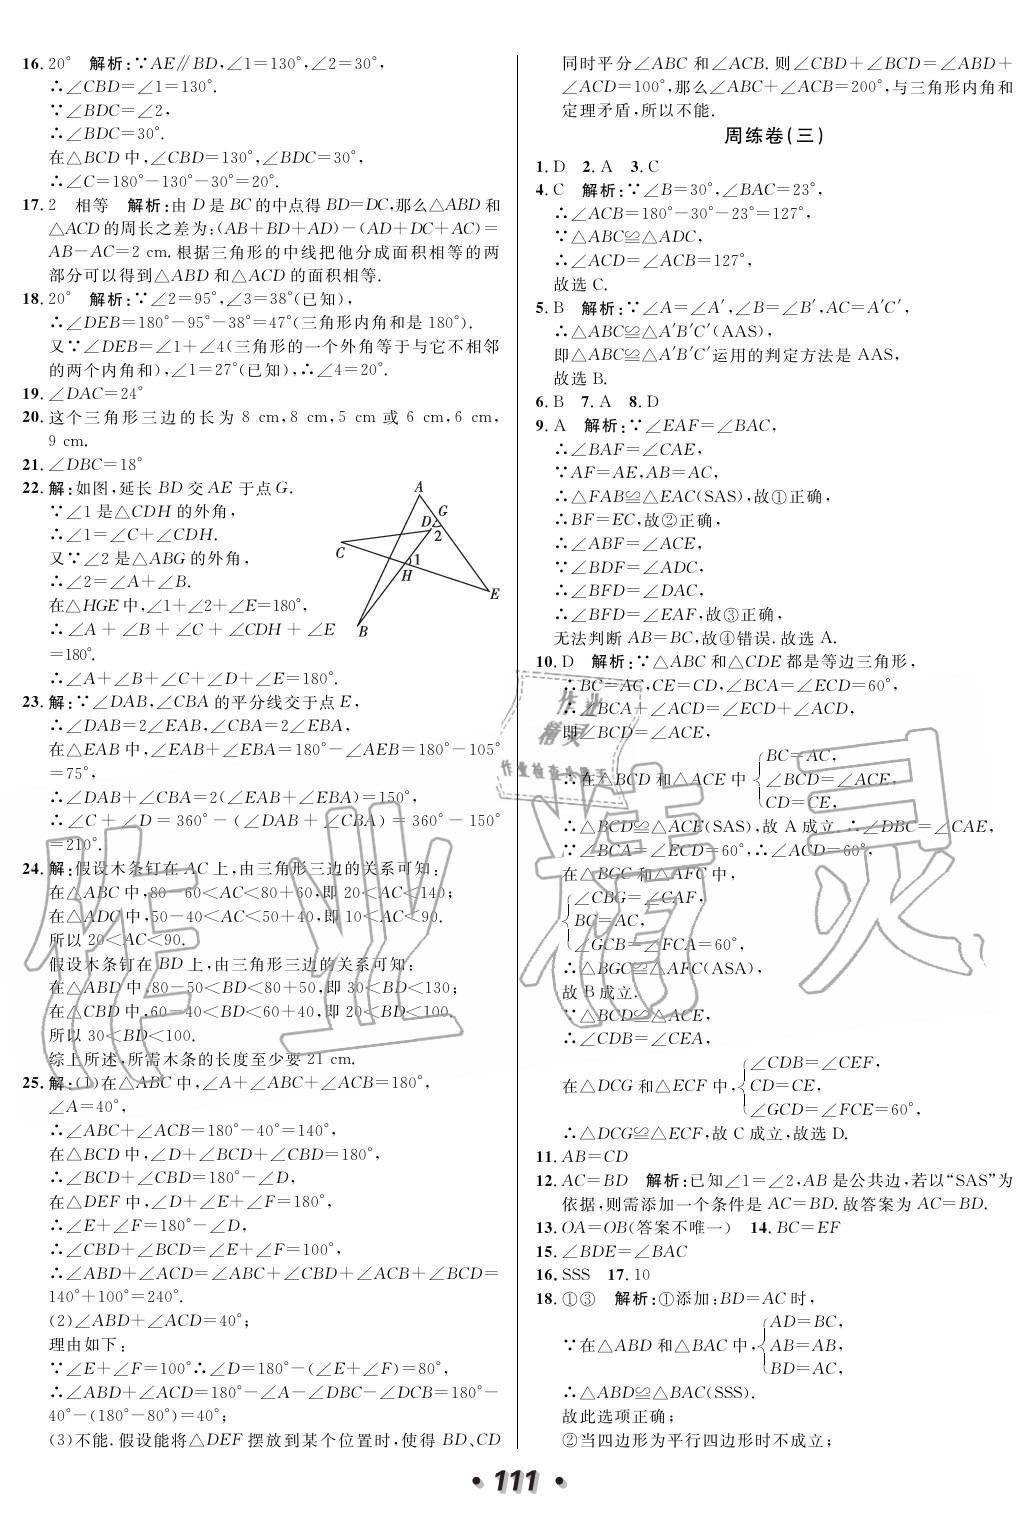 16. 20°　解析:∵AE∥BD,∠1=130°,∠2=30°,
∴∠CBD=∠1=130°.
∵∠BDC=∠2,
∴∠BDC=30°.
在△BCD中,∠CBD=130°,∠BDC=30°,
∴∠C=180°-130°-30°=20°.
17. 2　相等　解析:由D是BC的中点得BD=DC,那么△ABD和
△ACD的周长之差为:(AB+BD+AD)-(AD+DC+AC)=
AB-AC=2 cm.根据三角形的中线把他分成面积相等的两
部分可以得到△ABD和△ACD的面积相等.
18. 20°　解析:∵∠2=95°,∠3=38°(已知),
∴∠DEB=180°-95°-38°=47°(三角形内角和是180°).
又∵∠DEB=∠1+∠4(三角形的一个外角等于与它不相邻
的两个内角和),∠1=27°(已知),∴∠4=20°.
19. ∠DAC=24°
20. 这个三角形三边的长为 8 cm,8 cm,5 cm 或 6 cm,6 cm,
9 cm.
21. ∠DBC=18°
22. 解:如图,延长BD交AE于点G.
∵∠1是△CDH的外角,
∴∠1=∠C+∠CDH.
又∵∠2是△ABG的外角,
∴∠2=∠A+∠B.
在△HGE中,∠1+∠2+∠E=180°,
∴∠A+∠B+∠C+∠CDH+∠E
=180°.
∴∠A+∠B+∠C+∠D+∠E=180°.
A
G
D
2
C
1
H
E
B
23. 解:∵∠DAB,∠CBA的平分线交于点E,
∴∠DAB=2∠EAB,∠CBA=2∠EBA,
在△EAB中,∠EAB+∠EBA=180°-∠AEB=180°-105°
=75°,
∴∠DAB+∠CBA=2(∠EAB+∠EBA)=150°,
∴∠C+∠D=360°-(∠DAB+∠CBA)=360°-150°
=210°.
24. 解:假设木条钉在AC上,由三角形三边的关系可知:
在△ABC中,80-60<AC<80+60,即20<AC<140;
在△ADC中,50-40<AC<50+40,即10<AC<90.
所以20<AC<90.
假设木条钉在BD上,由三角形三边的关系可知:
在△ABD中,80-50<BD<80+50,即30<BD<130;
在△CBD中,60-40<BD<60+40,即20<BD<100.
所以30<BD<100.
综上所述,所需木条的长度至少要21 cm.
25. 解:(1)在△ABC中,∠A+∠ABC+∠ACB=180°,
∠A=40°,
∴∠ABC+∠ACB=180°-40°=140°,
在△BCD中,∠D+∠BCD+∠CBD=180°,
∴∠BCD+∠CBD=180°-∠D,
在△DEF中,∠D+∠E+∠F=180°,
∴∠E+∠F=180°-∠D,
∴∠CBD+∠BCD=∠E+∠F=100°,
∴∠ABD+∠ACD=∠ABC+∠CBD+∠ACB+∠BCD=
140°+100°=240°.
(2)∠ABD+∠ACD=40°;
理由如下:
∵∠E+∠F=100°∴∠D=180°-(∠E+∠F)=80°,
∴∠ABD+∠ACD=180°-∠A-∠DBC-∠DCB=180°-
40°-(180°-80°)=40°;
(3)不能.假设能将△DEF摆放到某个位置时,使得BD、CD
同时平分∠ABC和∠ACB.则∠CBD+∠BCD=∠ABD+
∠ACD=100°,那么∠ABC+∠ACB=200°,与三角形内角和
定理矛盾,所以不能.
周练卷(三)
1. D　2. A　3. C
4. C　解析:∵∠B=30°,∠BAC=23°,
∴∠ACB=180°-30°-23°=127°,
∵△ABC≌△ADC,
∴∠ACD=∠ACB=127°,
故选C.
5. B　解析:∵∠A=∠A′,∠B=∠B′,AC=A′C′,
∴△ABC≌△A′B′C′(AAS),
即△ABC≌△A′B′C′运用的判定方法是AAS,
故选B.
6. B　7. A　8. D
9. A　解析:∵∠EAF=∠BAC,
∴∠BAF=∠CAE,
∵AF=AE,AB=AC,
∴△FAB≌△EAC(SAS),故①正确,
∴BF=EC,故②正确,
∴∠ABF=∠ACE,
∵∠BDF=∠ADC,
∴∠BFD=∠DAC,
∴∠BFD=∠EAF,故③正确,
无法判断AB=BC,故④错误.故选A.
10. D　解析:∵△ABC和△CDE都是等边三角形,
∴BC=AC,CE=CD,∠BCA=∠ECD=60°,
∴∠BCA+∠ACD=∠ECD+∠ACD,
即∠BCD=∠ACE,
∴在△BCD和△ACE中
BC=AC,
∠BCD=∠ACE,
CD=CE,
∴△BCD≌△ACE(SAS),故A成立.∴∠DBC=∠CAE,
∵∠BCA=∠ECD=60°,∴∠ACD=60°,
在△BGC和△AFC中,
∠CBG=∠CAF,
BC=AC,
∠GCB=∠FCA=60°,
∴△BGC≌△AFC(ASA),
故B成立.
∵△BCD≌△ACE,
∴∠CDB=∠CEA,
在△DCG和△ECF中,
∠CDB=∠CEF,
CD=CE,
∠GCD=∠FCE=60°,
∴△DCG≌△ECF,故C成立,故选D.
11. AB=CD
12. AC=BD　解析:已知∠1=∠2,AB是公共边,若以“SAS”为
依据,则需添加一个条件是AC=BD.故答案为AC=BD.
13. OA=OB(答案不唯一)　14. BC=EF
15. ∠BDE=∠BAC
16. SSS　17. 10
18. ①③　解析:①添加:BD=AC时,
∵在△ABD和△BAC中,
AD=BC,
AB=AB,
BD=AC,
∴△ABD≌△BAC(SSS).
故此选项正确;
②当四边形为平行四边形时不成立;
• 111 •
作业
精灵
作业检查小帮手
作业精灵